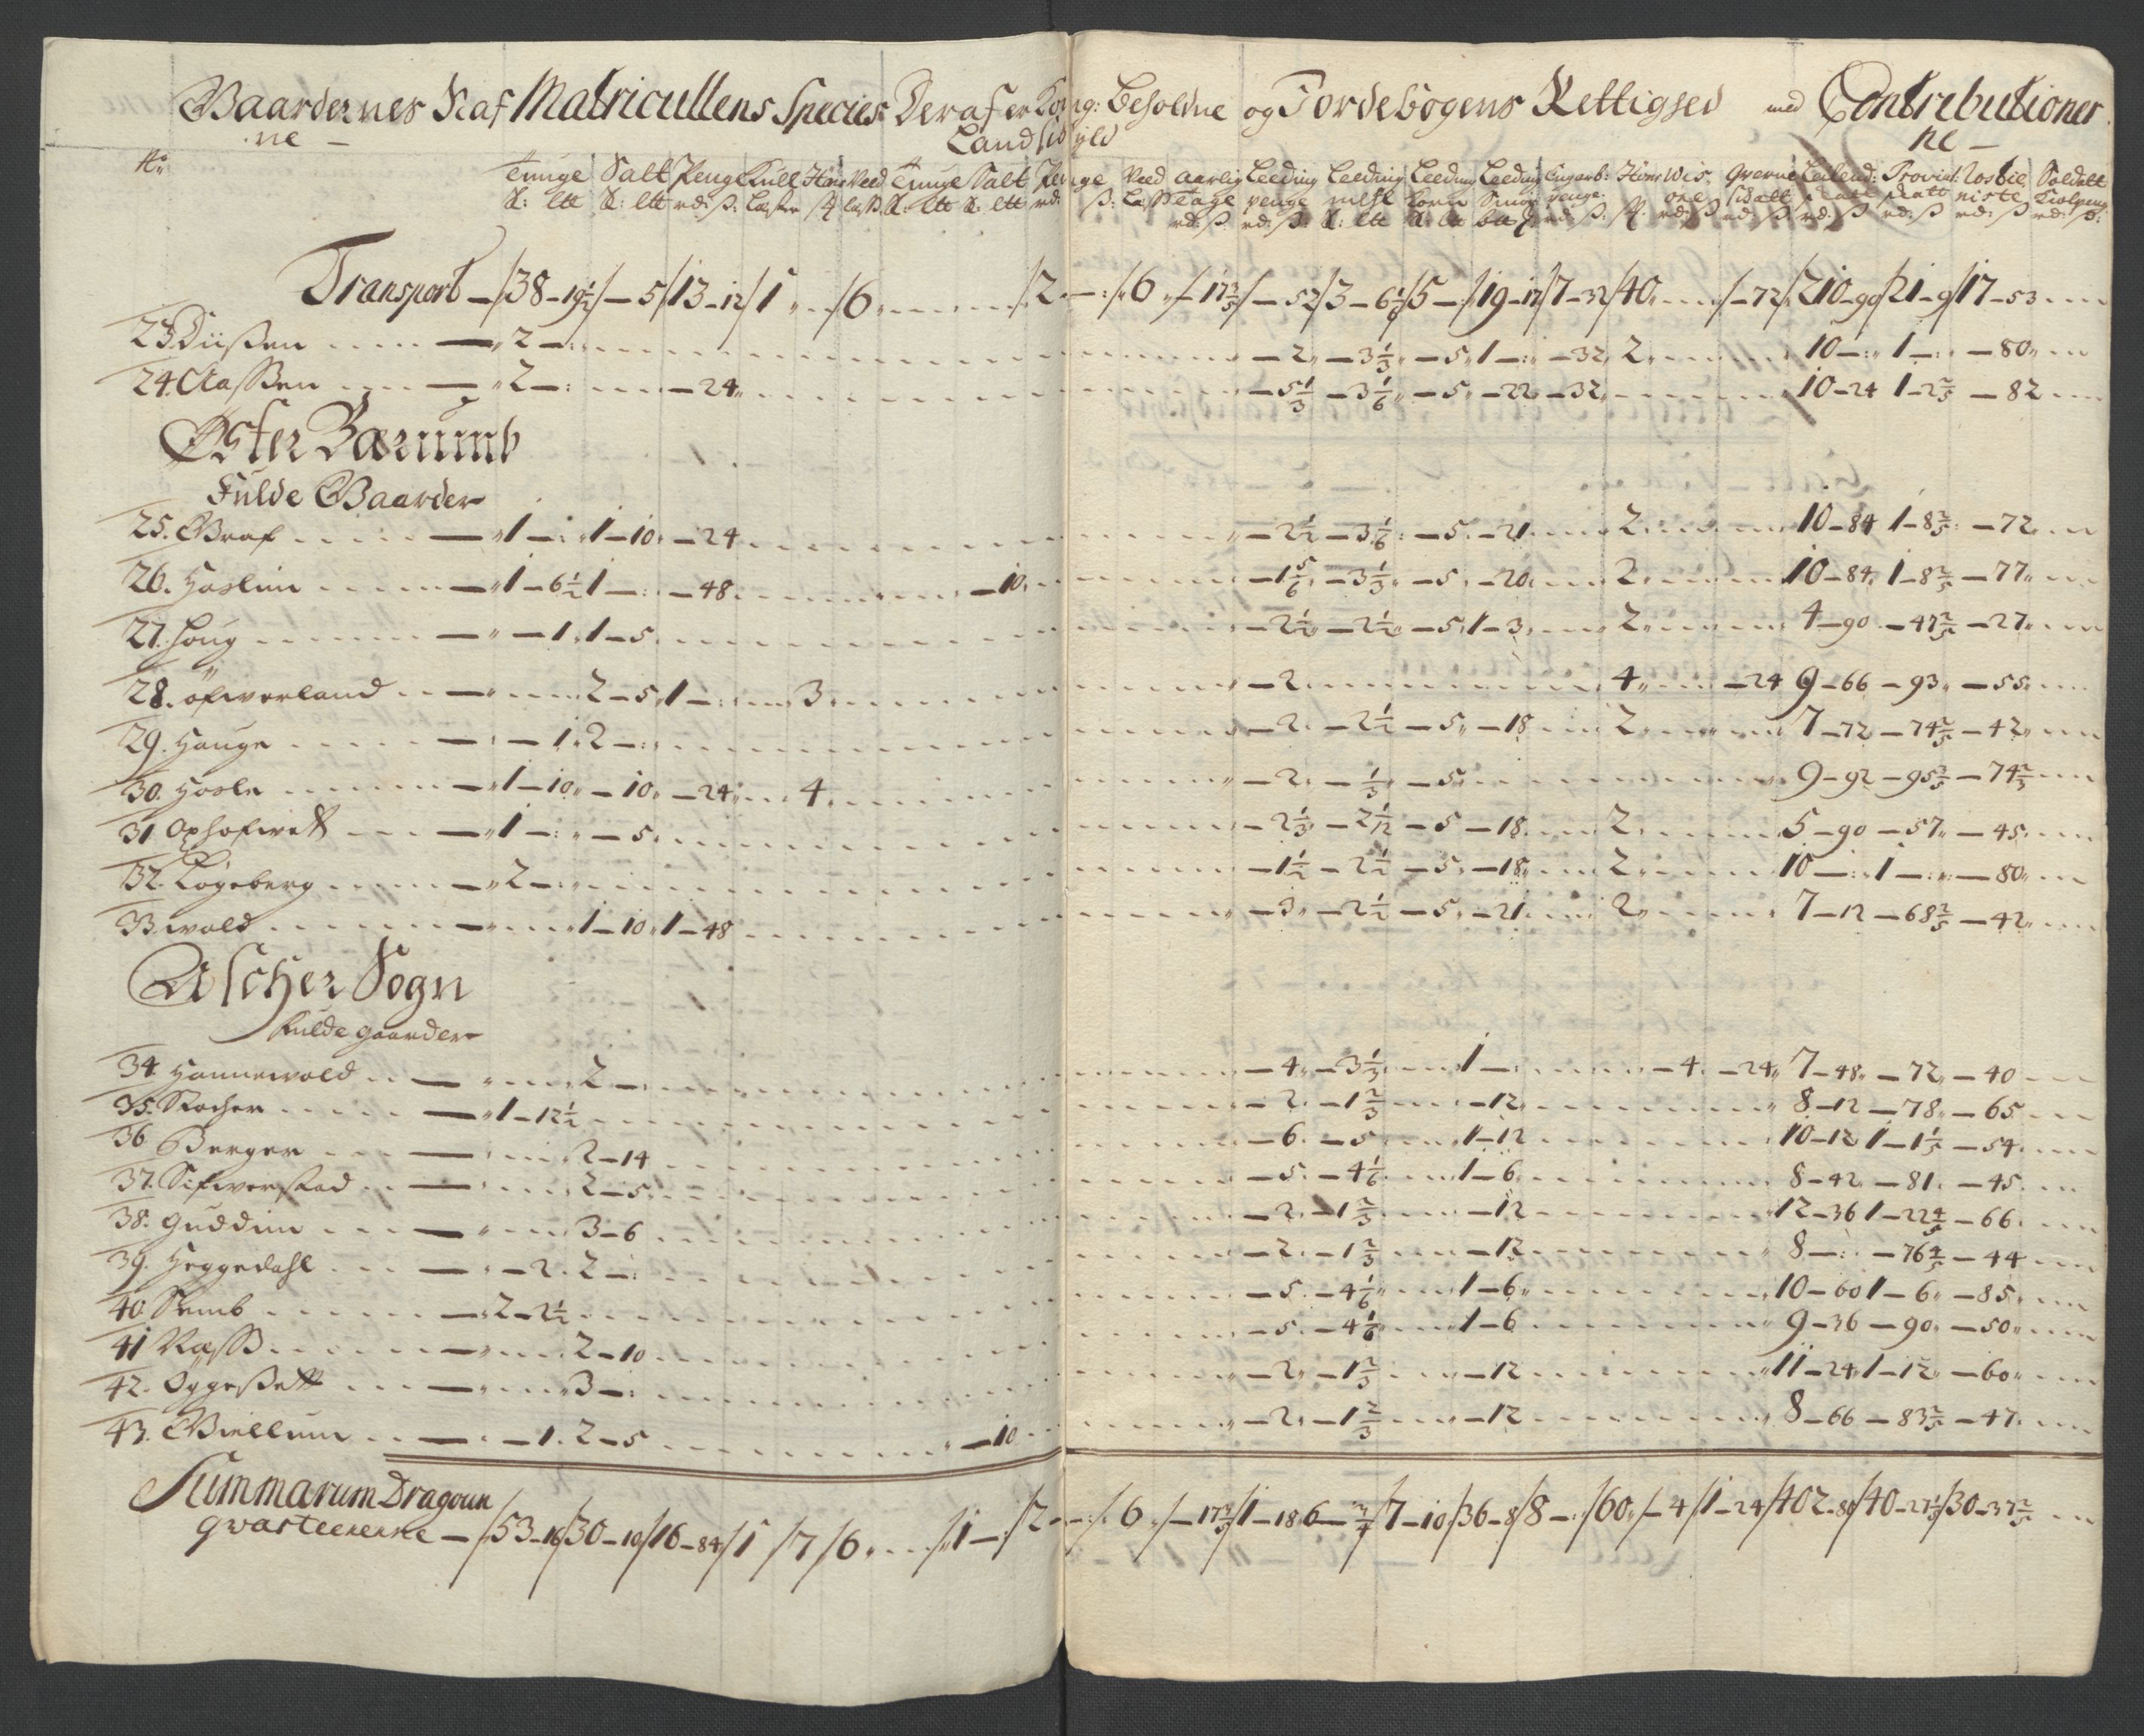 Gaardernes Naf Matricullens Species Deraf er Kong: Beholdne og Jordebogens Rettighed med Contributioner
ne – Landskyld ne –
No Tunge Salt Penge Hune Veed Tunge Salt Penge Veed Aarlig Leeding Leeding Leeding Leeding Hune Wis Qverne Leilend: Provid: Rostie Soldatt
Tage penge mehl korn Smör penge øre skatt skatt skatt niste
Transport – 38–19½ – 5 13–12 1 6 2 –: 6 – 17 – 52 3–6 5– 19–17 7–32 40 – 72 210–99 21–9 17–53
23 – 2 –: – 2 – 3⅓ – 5 1 –: – 32 2 10 –: 1 –: – 80
24. Claßen – 2 –: – 24 – 5⅓ – 3⅙ – 5 – 22 – 32 10–24 1–2⅖ – 82
Øster Bærumb
Fulde Gaarder
25. Graf – 1 –: 1–10 – 24 – 2½ – 3⅙ – 5 – 21 2 10–84 1–8⅖ – 72
26. Haslum – 1–6½ 1 –: – 48 – 10 – 1⅚ – 3⅓ – 5 – 20 2 10–84 1–8⅖ – 77
27. Houg – – 1 1–5 – 2½ – 2½ – 5 1–3 2 4–90 – 47⅖ – 27
28. öfwerland – 2–5 1 –: 3 – 2 4 – 24 9–66 – 93 – 55
29. Hauge – – 1 2 –: – 2 – 2½ – 5 – 18 2 7–72 – 74⅖ – 42
30. Hosle – 1–10 – 10 – 24 4 – 2 – ⅓ – 5 9–92 – 95⅗ – 74⅔
31. Ophofwet – 1 –: – 5 – 2⅓ – 2 1/12 – 5 – 18 2 5–90 – 57 – 45
32. Lögeberg – 2 –: – 1½ – 2½ – 5 – 18 2 10 –: 1 –: – 80
33. wold – 1–10 1–48 – 3 – 2½ – 5 – 21 2 7–12 – 68⅖ – 42
Ascher Sogn
Fulde gaarder
34. Hannewold – 2 –: – 4 – 3⅓ 1 –: – 4 – 24 7–48 – 72 – 40
35. Skocher – 1–12½ – 2 – 1⅔ – 12 8–12 – 78 – 65
36 Berger – 2–14 – 6 – 5 1–12 10–12 1–1⅕ – 54
37. Sifwerstad – 2–5 – 5 – 4⅙ 1–6 8–42 – 81 – 45
38. Guddim – 3–6 – 2 – 1⅔ – 12 12–36 1–22⅘ – 66
39. Heggedahl – – 2 2 –: – 2 – 1⅔ – 12 8 –: – 76⅘ – 44
40. Semb – 2–2½ – 5 – 4⅙ 1–6 10–60 1–6 – 85
41 Naß – 2–10 – 5 – 4⅙ 1–6 9–36 – 90 – 50
42. Oppeßett – 3 –: – 2 – 1⅔ – 12 11–24 1–12 – 60
43. Giellum – – 1 2–5 – 10 – 2 – 1⅔ – 12 8–66 – 83⅖ – 47
Summarum Dragoun
qvarteererne – 53–16 30–10 16–84 1 7 6 1 – 2 –: 6 – 17 1–18 6–¾ 7–10 36–8 8 –: 60 – 4 1–24 402–80 40–27⅕ 30–37⅖